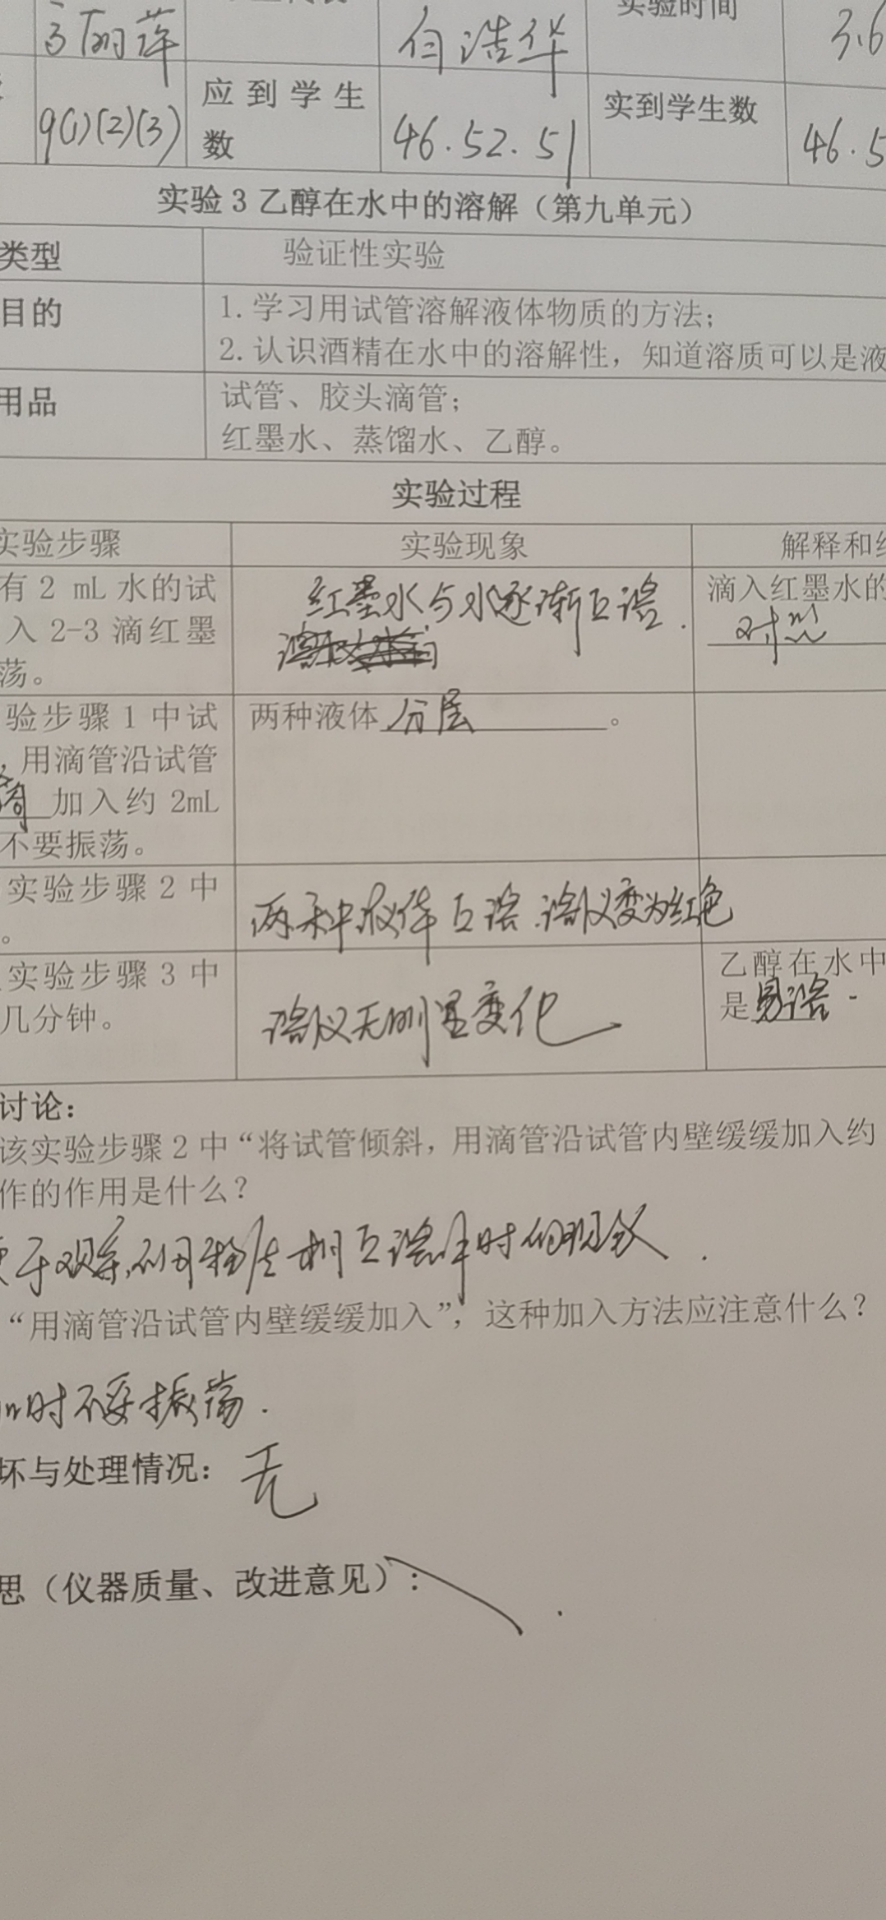 高丽萍 白浩华 实验时间 3.6
9(1)(2)(3) 应到学生数 46.52.51 实到学生数 46.5
实验3乙醇在水中的溶解（第九单元）
类型 验证性实验
目的 1.学习用试管溶解液体物质的方法；
2.认识酒精在水中的溶解性，知道溶质可以是液
用品 试管、胶头滴管；
红墨水、蒸馏水、乙醇。
实验过程
实验步骤 实验现象 解释和结
有2 mL水的试 红墨水与水逐渐互溶. 滴入红墨水的
入2-3滴红墨 对照
荡。
验步骤1中试 两种液体分层。
，用滴管沿试管
加入约2mL
不要振荡。
实验步骤2中 两种液体互溶.溶液变为红色
。
实验步骤3中 溶液无明显变化 乙醇在水中
几分钟。 是易溶.
讨论：
该实验步骤2中“将试管倾斜，用滴管沿试管内壁缓缓加入约
作的作用是什么？
便于观察不同物质相互溶解时的现象.
“用滴管沿试管内壁缓缓加入”，这种加入方法应注意什么？
时不要振荡.
坏与处理情况：无
思（仪器质量、改进意见）：